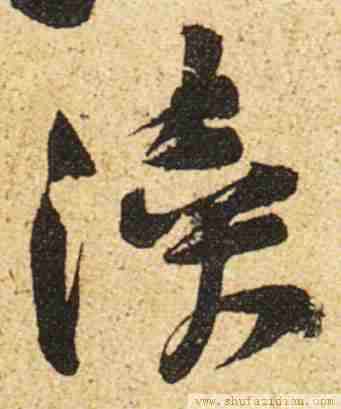 瀆
www.shufazidian.com